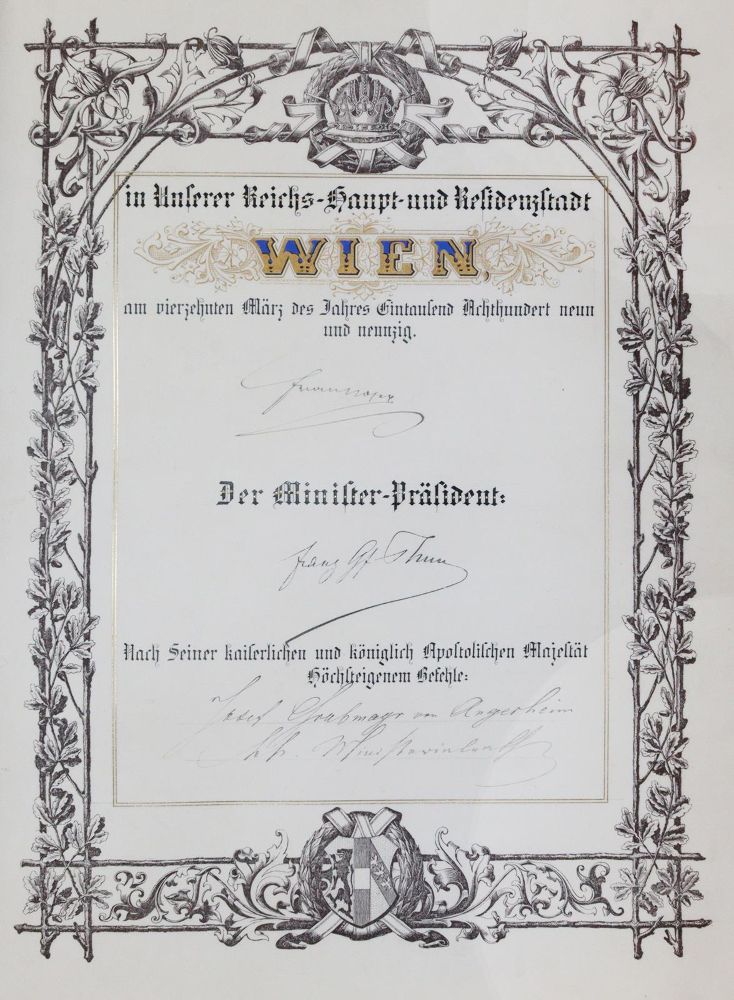 in Unserer Reichs-Haupt- und Residenzstadt
WIEN,
am vierzehnten März des Jahres Eintausend Achthundert neun
und neunzig.
Franz Josef
Der Minister-Präsident:
Franz Gf Thun
Nach Seiner kaiserlichen und königlich Apostolischen Majestät
Höchsteigenem Befehle:
Josef Grabmayr von Angerheim
kk. Ministerialrath